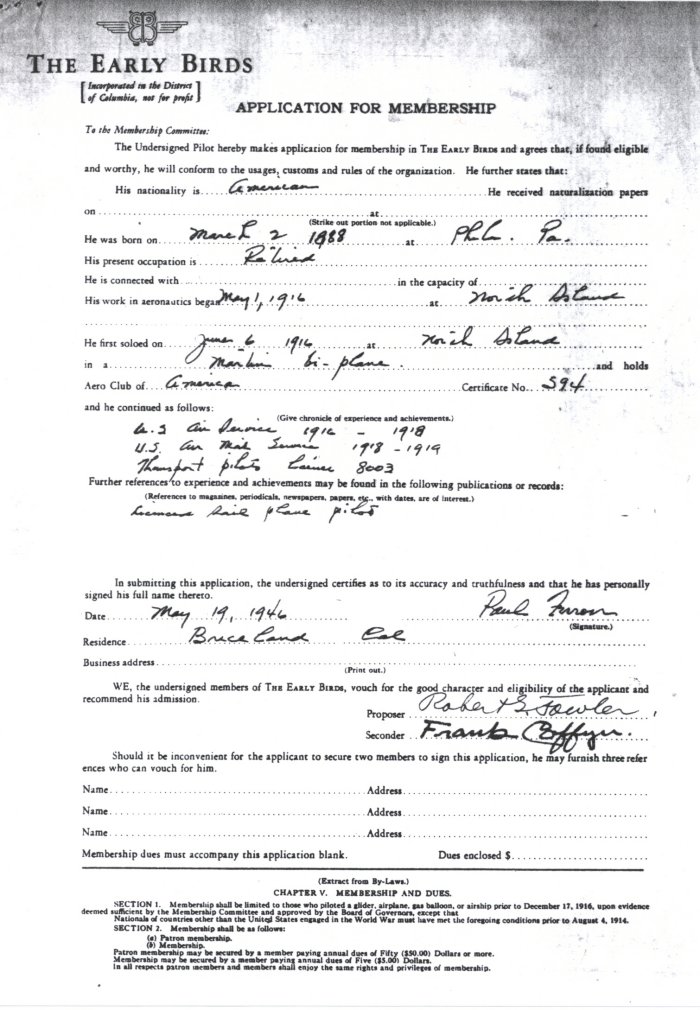 THE EARLY BIRDS
[ Incorporated in the District
of Columbia, not for profit ]
APPLICATION FOR MEMBERSHIP
To the Membership Committee:
The Undersigned Pilot hereby makes application for membership in THE EARLY BIRDS and agrees that, if found eligible
and worthy, he will conform to the usages, customs and rules of the organization. He further states that:
His nationality is American He received naturalization papers
on at
(Strike out portion not applicable.)
He was born on March 2 1888 at Phla. Pa.
His present occupation is Retired
He is connected with in the capacity of
His work in aeronautics began May 1, 1916 at North Island
He first soloed on June 6 1916 at North Island
in a Martin bi-plane. and holds
Aero Club of America Certificate No. 594
and he continued as follows:
(Give chronicle of experience and achievements.)
U.S Air Service 1916 - 1918
U.S. Air Mail Service 1918 - 1919
Transport pilots license 8003
Further references to experience and achievements may be found in the following publications or records:
(References to magazines, periodicals, newspapers, papers, etc., with dates, are of interest.)
Licensed sail plane pilot
In submitting this application, the undersigned certifies as to its accuracy and truthfulness and that he has personally
signed his full name thereto.
Date May 19, 1946 Paul
(Signature.)
Residence Briceland Cal
Business address
(Print out.)
WE, the undersigned members of THE EARLY BIRDS, vouch for the good character and eligibility of the applicant and
recommend his admission.
Proposer Robert G. Fowler
Seconder Frank Coffyn.
Should it be inconvenient for the applicant to secure two members to sign this application, he may furnish three refer
ences who can vouch for him.
Name Address
Name Address
Name Address
Membership dues must accompany this application blank. Dues enclosed $
(Extract from By-Laws.)
CHAPTER V. MEMBERSHIP AND DUES.
SECTION 1. Membership shall be limited to those who piloted a glider, airplane, gas balloon, or airship prior to December 17, 1916, upon evidence
deemed sufficient by the Membership Committee and approved by the Board of Governors, except that
Nationals of countries other than the United States engaged in the World War must have met the foregoing conditions prior to August 4, 1914.
SECTION 2. Membership shall be as follows:
(a) Patron membership.
(b) Membership.
Patron membership may be secured by a member paying annual dues of Fifty ($50.00) Dollars or more.
Membership may be secured by a member paying annual dues of Five ($5.00) Dollars.
In all respects patron members and members shall enjoy the same rights and privileges of membership.